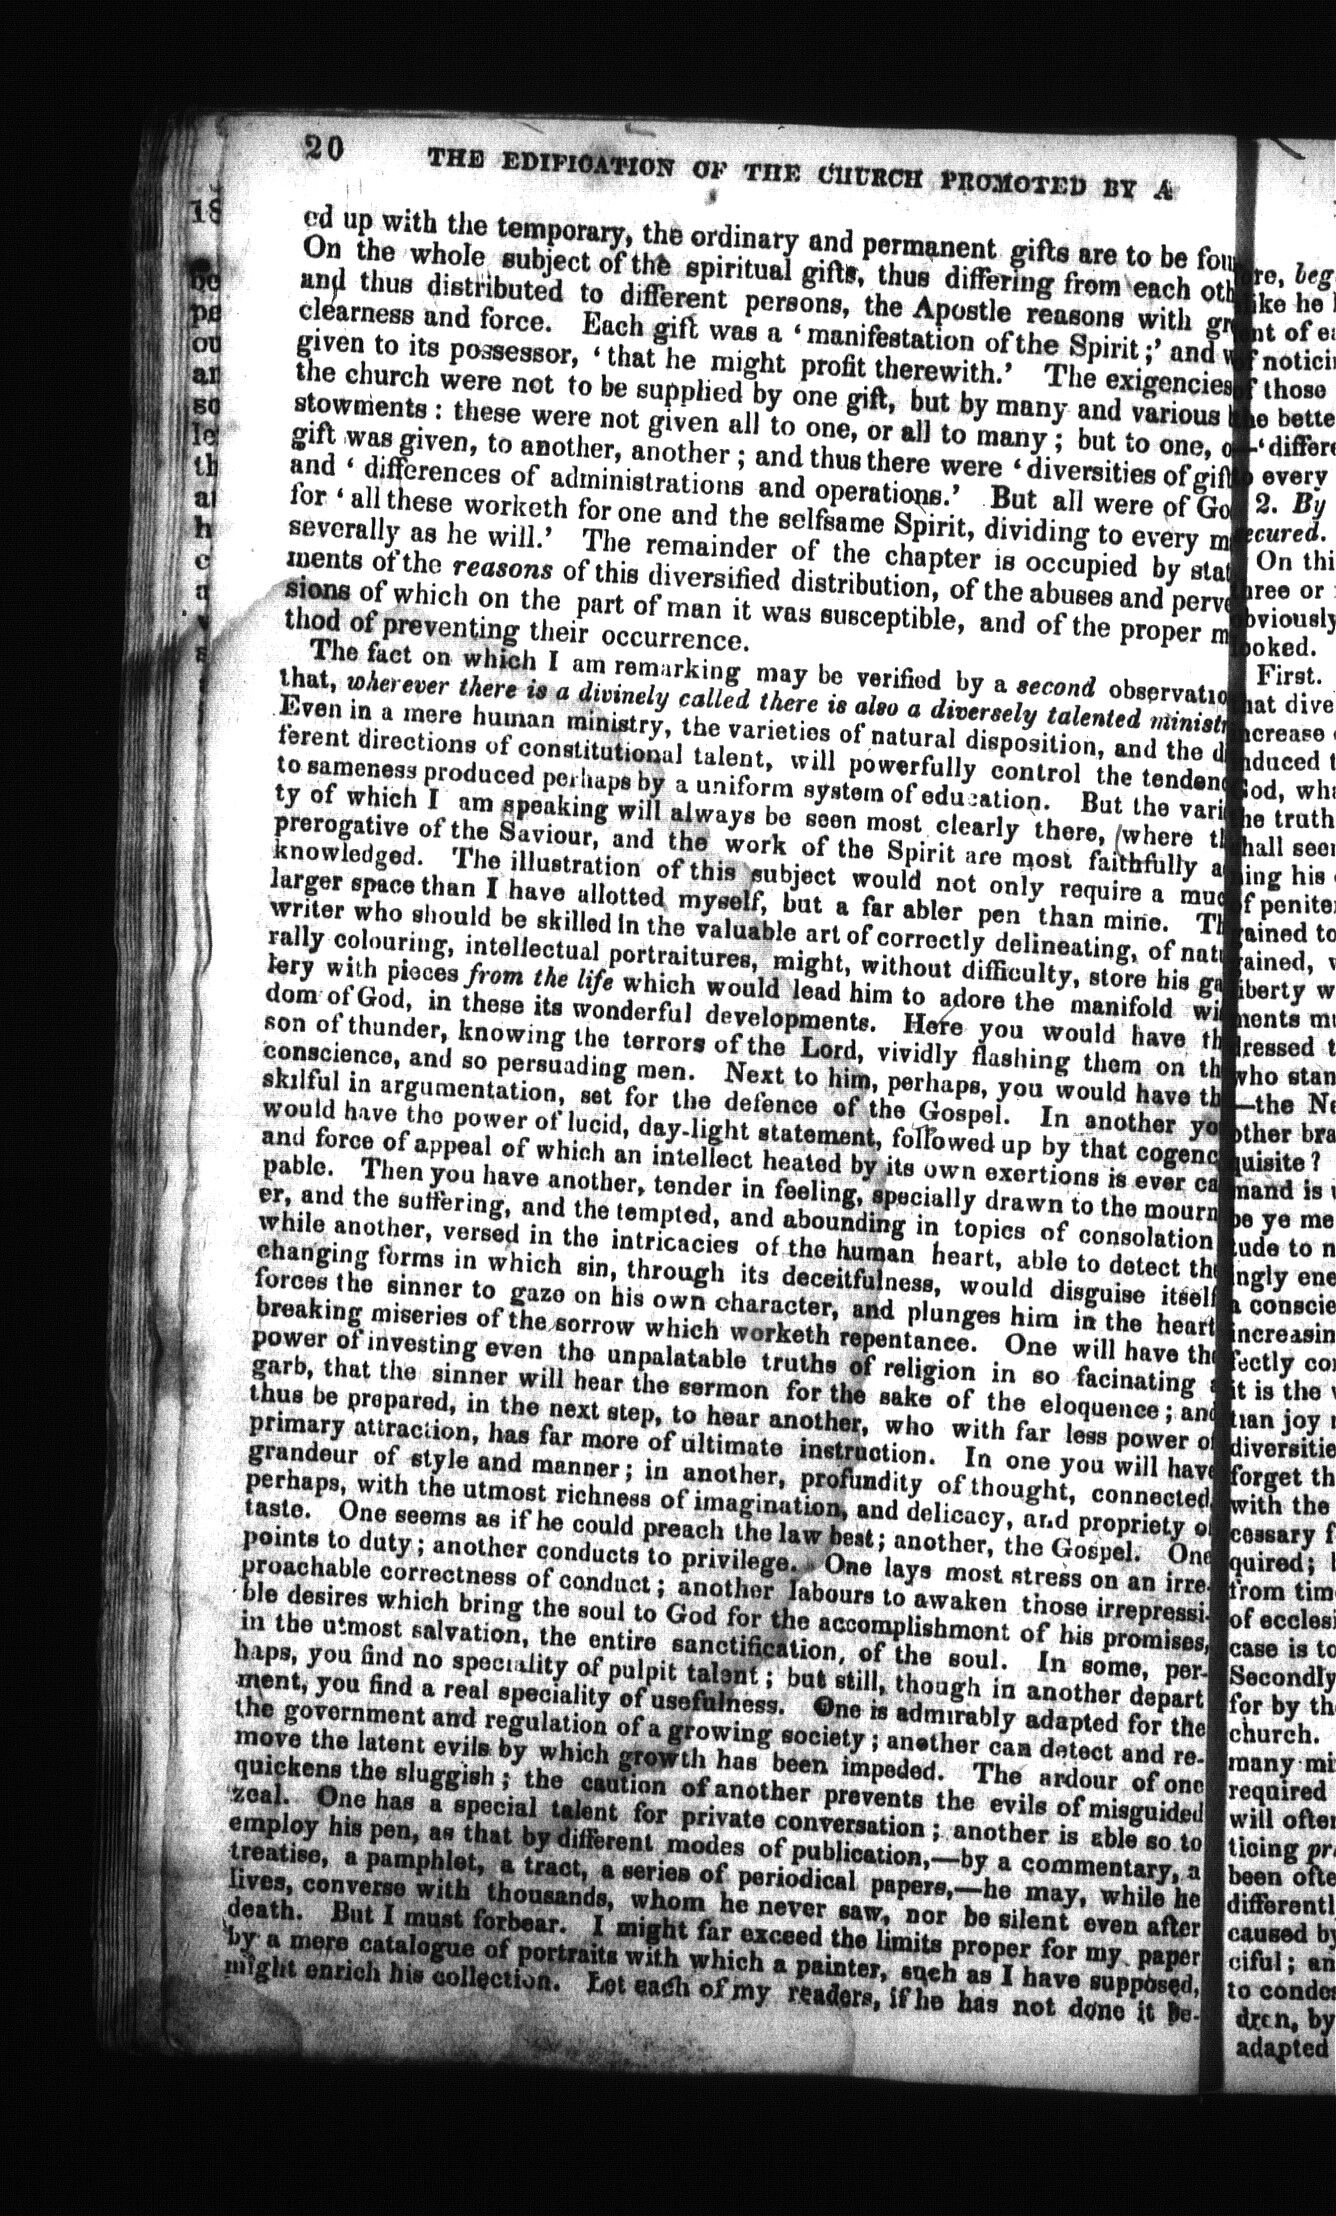 20 THE EDIFICATION OF THE CHURCH PROMOTED BY A
ed up with the temporary, the ordinary and permanent gifts are to be fou
On the whole subject of the spiritual gifts, thus differing from each oth
and thus distributed to different persons, the Apostle reasons with gr
clearness and force. Each gift was a ‘manifestation of the Spirit;’ and w
given to its possessor, ‘that he might profit therewith.’ The exigencies
the church were not to be supplied by one gift, but by many and various
stowments: these were not given all to one, or all to many; but to one, o
gift was given, to another, another; and thus there were ‘diversities of gift
and ‘differences of administrations and operations.’ But all were of Go
for ‘all these worketh for one and the selfsame Spirit, dividing to every m
severally as he will.’ The remainder of the chapter is occupied by stat
ments of the reasons of this diversified distribution, of the abuses and perve
sions of which on the part of man it was susceptible, and of the proper m
thod of preventing their occurrence.
The fact on which I am remarking may be verified by a second observatio
that, wherever there is a divinely called there is also a diversely talented ministr
Even in a mere human ministry, the varieties of natural disposition, and the d
ferent directions of constitutional talent, will powerfully control the tendenc
to sameness produced perhaps by a uniform system of education. But the vari
ty of which I am speaking will always be seen most clearly there, where th
prerogative of the Saviour, and the work of the Spirit are most faithfully a
knowledged. The illustration of this subject would not only require a muc
larger space than I have allotted myself, but a far abler pen than mine. Th
writer who should be skilled in the valuable art of correctly delineating, of natu
rally colouring, intellectual portraitures, might, without difficulty, store his ga
lery with pieces from the life which would lead him to adore the manifold wi
dom of God, in these its wonderful developments. Here you would have th
son of thunder, knowing the terrors of the Lord, vividly flashing them on th
conscience, and so persuading men. Next to him, perhaps, you would have th
skilful in argumentation, set for the defence of the Gospel. In another yo
would have the power of lucid, day-light statement, followed up by that cogenc
and force of appeal of which an intellect heated by its own exertions is ever ca
pable. Then you have another, tender in feeling, specially drawn to the mourn
er, and the suffering, and the tempted, and abounding in topics of consolation
while another, versed in the intricacies of the human heart, able to detect the
changing forms in which sin, through its deceitfulness, would disguise itself
forces the sinner to gaze on his own character, and plunges him in the heart
breaking miseries of the sorrow which worketh repentance. One will have the
power of investing even the unpalatable truths of religion in so facinating a
garb, that the sinner will hear the sermon for the sake of the eloquence; and
thus be prepared, in the next step, to hear another, who with far less power of
primary attraction, has far more of ultimate instruction. In one you will have
grandeur of style and manner; in another, profundity of thought, connected,
perhaps, with the utmost richness of imagination, and delicacy, and propriety of
taste. One seems as if he could preach the law best; another, the Gospel. One
points to duty; another conducts to privilege. One lays most stress on an irre-
proachable correctness of conduct; another labours to awaken those irrepressi-
ble desires which bring the soul to God for the accomplishment of his promises,
in the utmost salvation, the entire sanctification, of the soul. In some, per-
haps, you find no speciality of pulpit talent; but still, though in another depart
ment, you find a real speciality of usefulness. One is admirably adapted for the
the government and regulation of a growing society; another can detect and re-
move the latent evils by which growth has been impeded. The ardour of one
quickens the sluggish; the caution of another prevents the evils of misguided
zeal. One has a special talent for private conversation; another is able so to
employ his pen, as that by different modes of publication,—by a commentary, a
treatise, a pamphlet, a tract, a series of periodical papers,—he may, while he
lives, converse with thousands, whom he never saw, nor be silent even after
death. But I must forbear. I might far exceed the limits proper for my paper
by a mere catalogue of portraits with which a painter, such as I have supposed,
might enrich his collection. Let each of my readers, if he has not done it be-
re, beg
like he
nt of
of notici
of those
he bette
—‘differe
o every
2. By
ecured.
On thi
hree or
bviously
ooked.
First.
hat dive
ncrease
nduced t
God, wha
he truth
hall seem
ning his
of penite
rained to
ained, w
iberty w
ments mu
dressed t
who stan
—the Ne
other bra
quisite?
mand is
be ye me
tude to
ingly ene
a conscie
increasin
fectly con
it is the
tian joy
diversitie
forget th
with the
cessary f
quired;
from tim
of ecclesi
case is to
Secondly
for by th
church.
many mi
required
will often
ticing pr
been ofte
differentl
caused by
ciful; an
to conde
dren, by
adapted